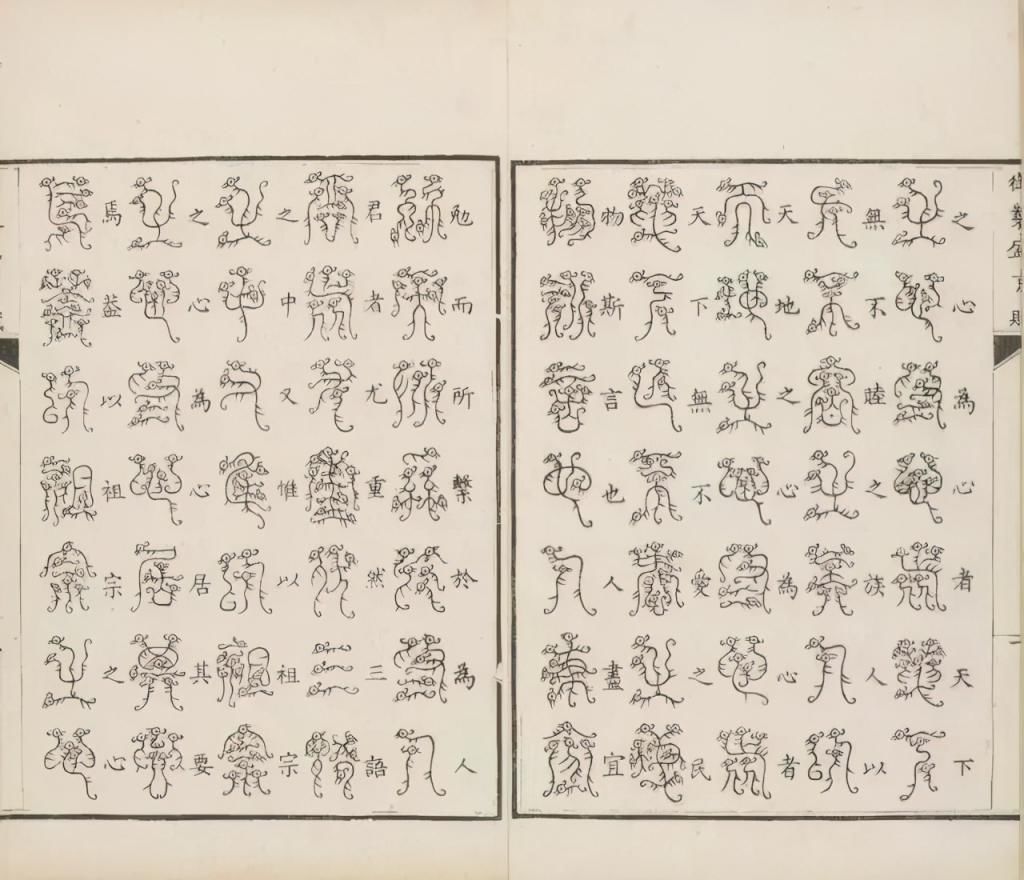 御製盛京賦
之心為心者天下
無不睦之族人以
天地之心為心者
天下無不愛之民
物斯言也人盡宜
勉而所繫於為人
君者尤重然三語
之中又惟以祖宗
之心為心居其要
焉葢以祖宗之心